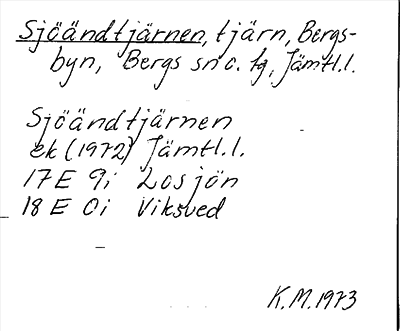 Sjöändtjärnen, tjärn, Bergs-
byn, Bergs sn o. tg, Jämtl.l.
Sjöändtjärnen
ek (1972) Jämtl.l.
17 E 9i Losjön
18 E 0i Viksved
K.M. 1973